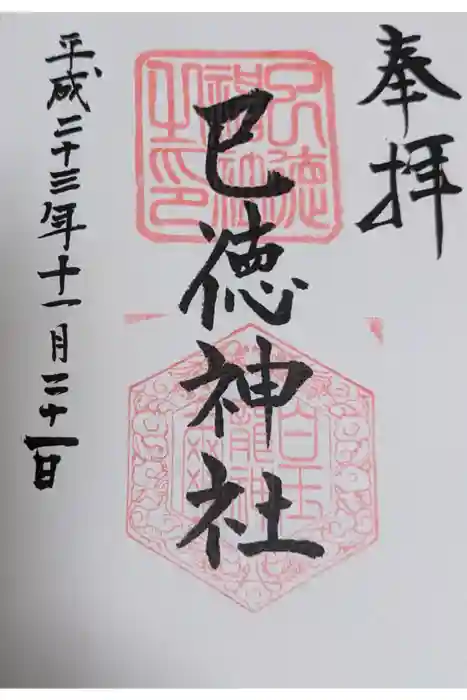 奉拝
巳徳神社
平成二十三年十一月二十一日